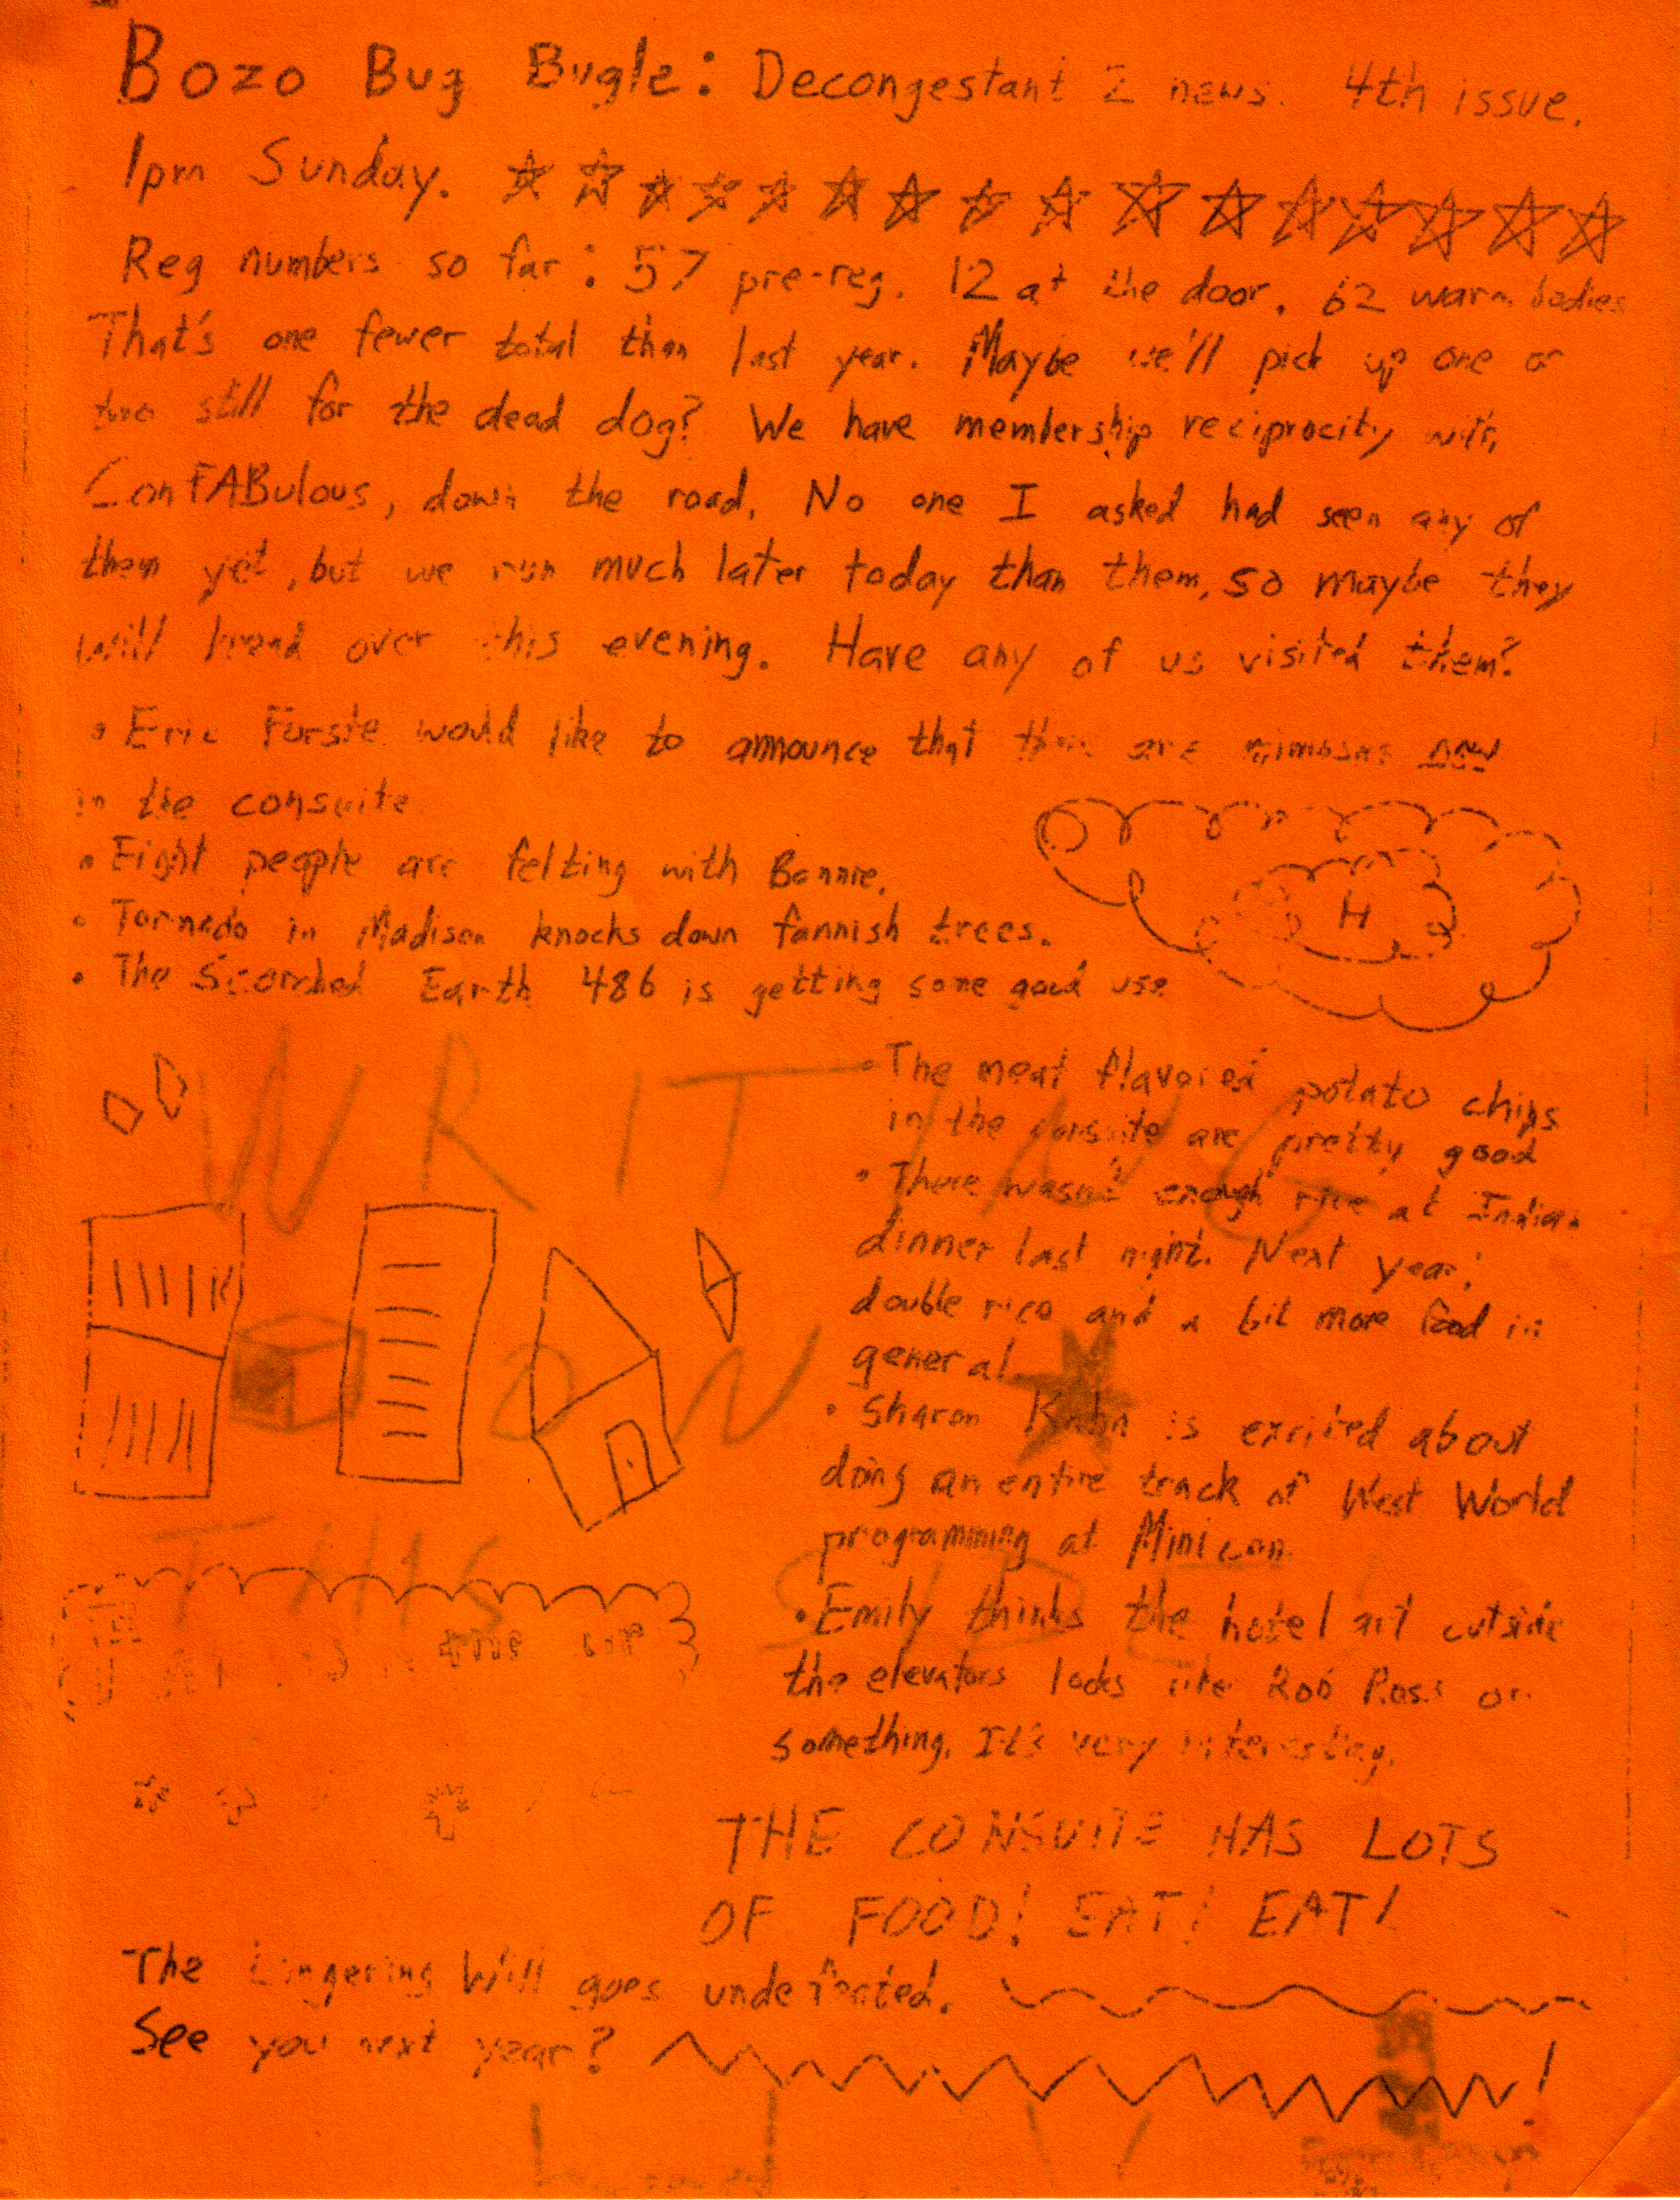 Bozo Bug Bugle: Decongestant 2 news. 4th issue.
1pm Sunday.
Reg numbers so far: 57 pre-reg. 12 at the door. 62 warm bodies
That's one fewer total than last year. Maybe we'll pick up one or
two still for the dead dog? We have membership reciprocity with
ConFABulous, down the road. No one I asked had seen any of
them yet, but we run much later today than them, so maybe they
will head over this evening. Have any of us visited them?
• Eric Forste would like to announce that there are mimosas now
in the consuite
• Eight people are felting with Bonnie.
H
• Tornado in Madison knocks down fannish trees.
• The Scorched Earth 486 is getting some good use
WRITING
• The meat flavored potato chips
in the consuite are pretty good
• There wasn't enough rice at Indian
dinner last night. Next year:
double rice and a bit more food in
general.
ON
• Sharon Kahn is excited about
doing an entire track of West World
programming at Minicon
THIS SIDE
• Emily thinks the hotel art outside
the elevators looks like Bob Ross or
something. It's very interesting.
THE CONSUITE HAS LOTS
OF FOOD! EAT! EAT!
The Lingering Will goes undefeated.
See you next year?